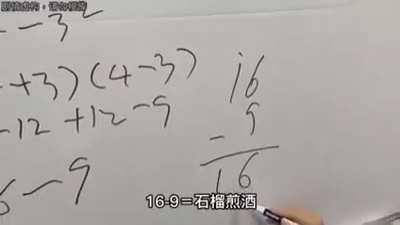 剧情虚构,请勿模仿
- - 3²
+3)(4-3)
-12+12-9
6-9
16
- 9
16
16-9=石榴煎酒